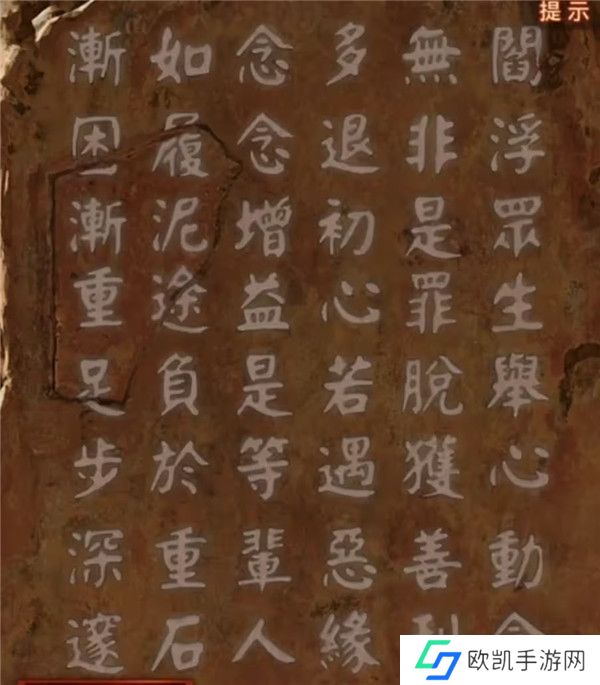 提示
閻浮眾生舉心動
無非是罪脫獲善
多退初心若遇惡緣
念念增益是等輩人
如履泥途負於重石
漸困漸重足步深邃
欧凯手游网